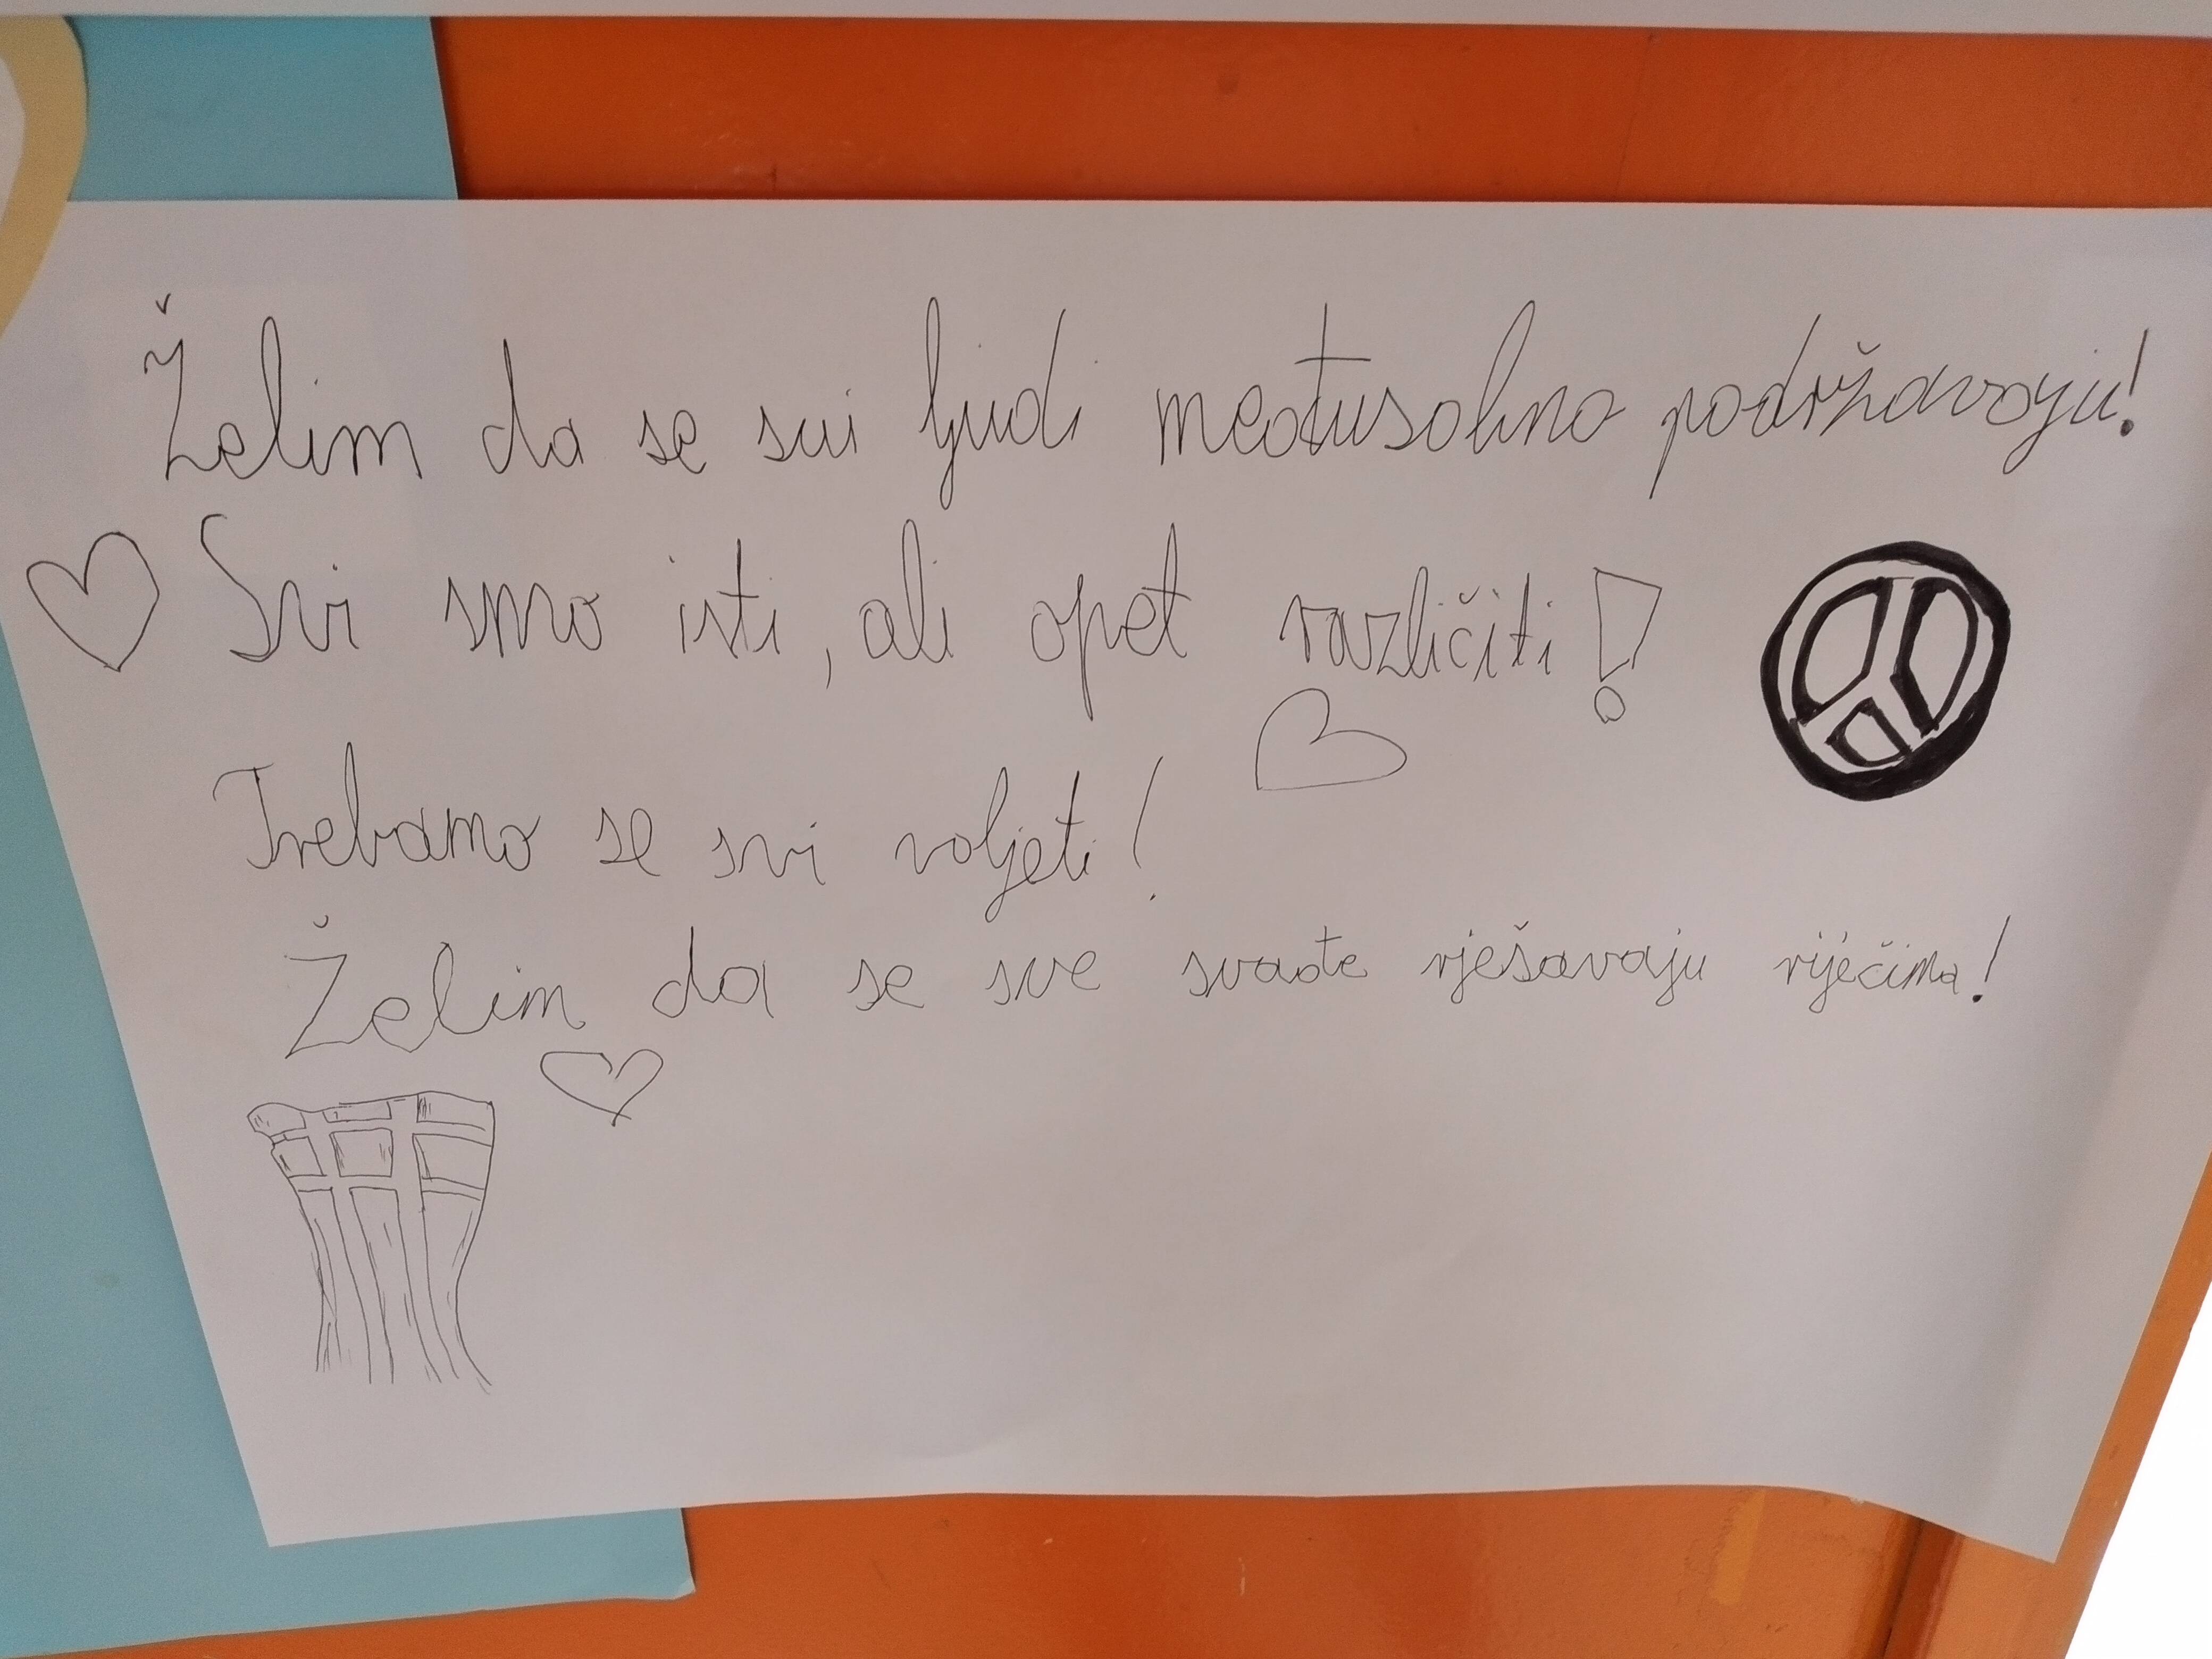 Želim da se svi ljudi međusobno podržavaju!
Svi smo isti, ali opet različiti!
Trebamo se svi voljeti!
Želim da se sve svađe rješavaju riječima!